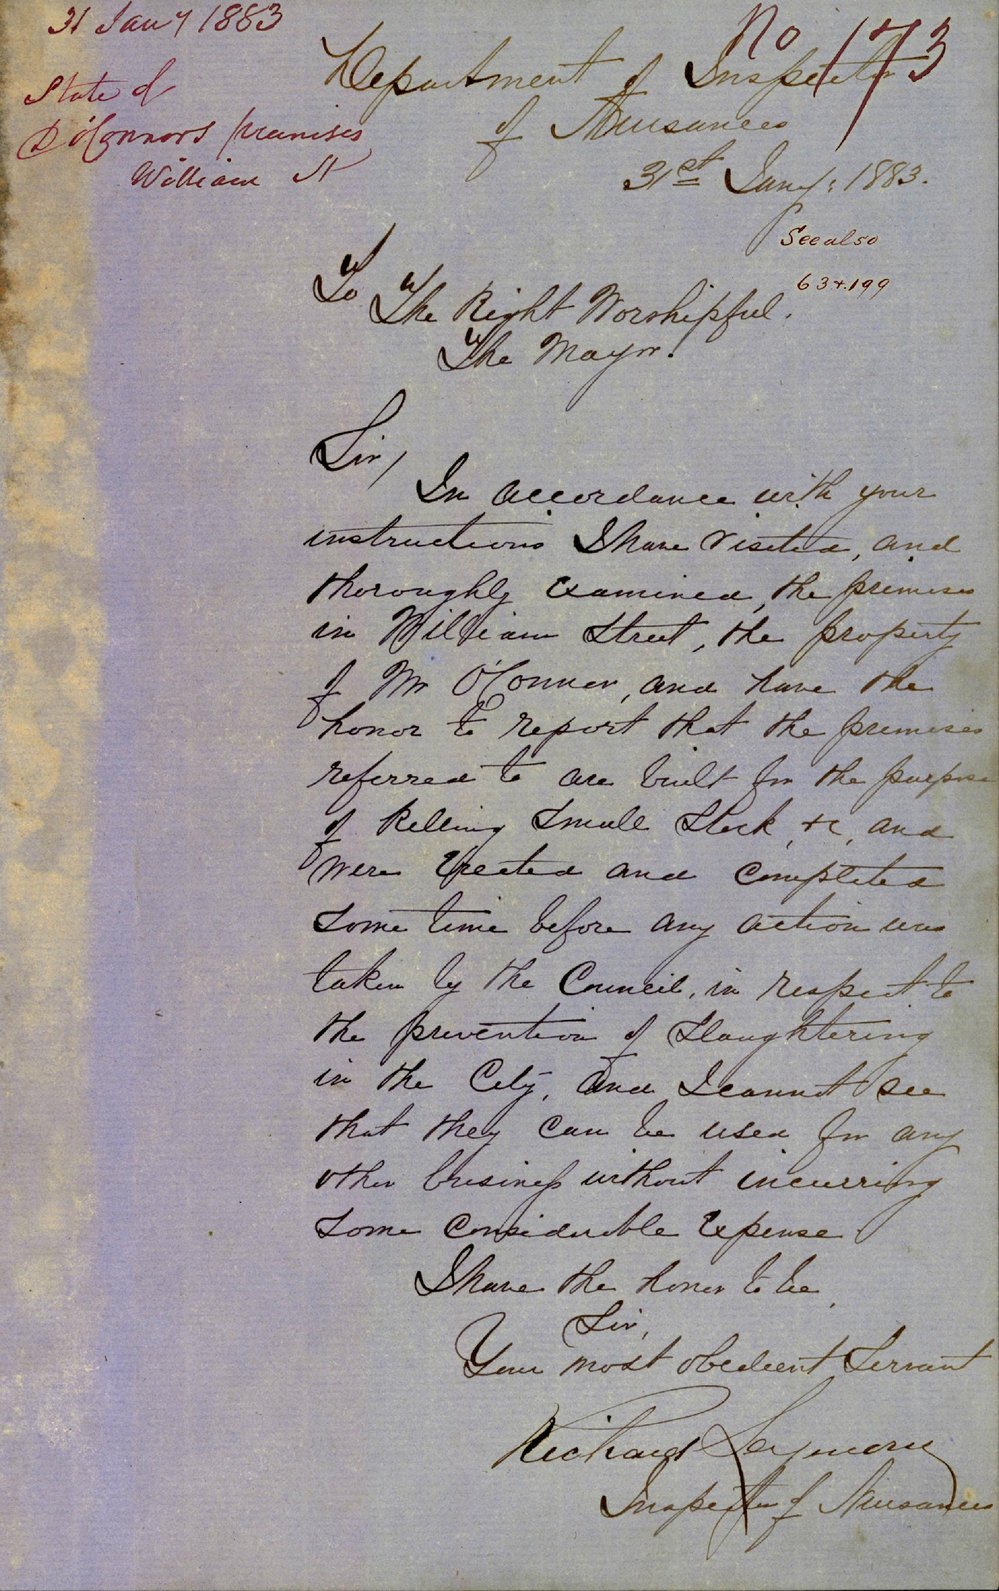 31 Jany 1883
No 173
State of
D O'Connors premises
William St
Department of Inspector
of Nuisances
31st Jany: 1883.
See also
63 & 199
To
The Right Worshipful.
The Mayor.
Sir,
In accordance with your
instructions I have visited, and
thoroughly examined, the premises
in William Street, the property
of Mr O'Conner, and have the
honor to report that the premises
referred to are built for the purpose
of Killing Small Stock, &c, and
were Erected and Completed
some time before any action was
taken by the Council, in respect to
the prevention of Slaughtering
in the City, and I cannot see
that they can be used for any
other business without incurring
some Considerable Expense.
I have the honor to be,
Sir,
Your most obedient Servant
Richard Seymour
Inspector of Nuisances